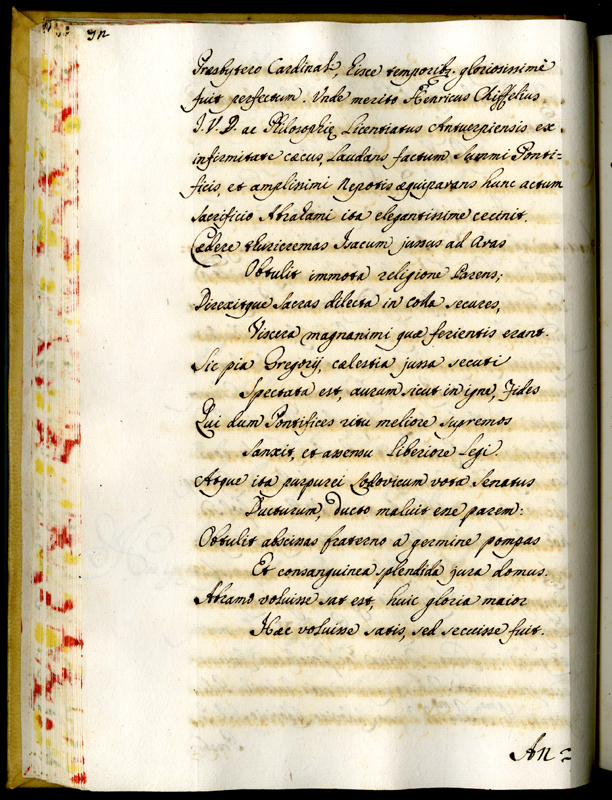 Presbytero Cardinali, hisce temporibz. gloriosissimè
fuit perfectum. Unde merito Henricus Chiffelius
I. V. D. ac Philosophię Licentiatus Antuerpiensis ex
infirmitate cæcus, Laudans factum Summi Ponti=
ficis, et amplissimi Nepotis æquiparans hunc actum
Sacrificio Abrahami ita elegantissime cecinit.
Cædere thuricremas Isacum jussus ad Aras
Obtulit immota religione Parens;
Direxitque Sacras dilecta in colla secures,
Viscera magnanimi quæ ferientis erant.
Sic pia Gregorij, cælestia jussa secuti
Spectata est, aurum sicut in igne, Fides
Qui dum Pontifices ritu meliore supremos
Sanxit, et assensu Liberiore Legi.
Atque ita purpurei Lodovicum vota Senatus
Ducturum, ducto maluit esse parem:
Obtulit abscissas fraterno a germine pompas
Et consanguineæ splendida jura domus.
Abramo voluisse sat est, huic gloria maior
Hæc voluisse satis, sed secuisse fuit.
An=